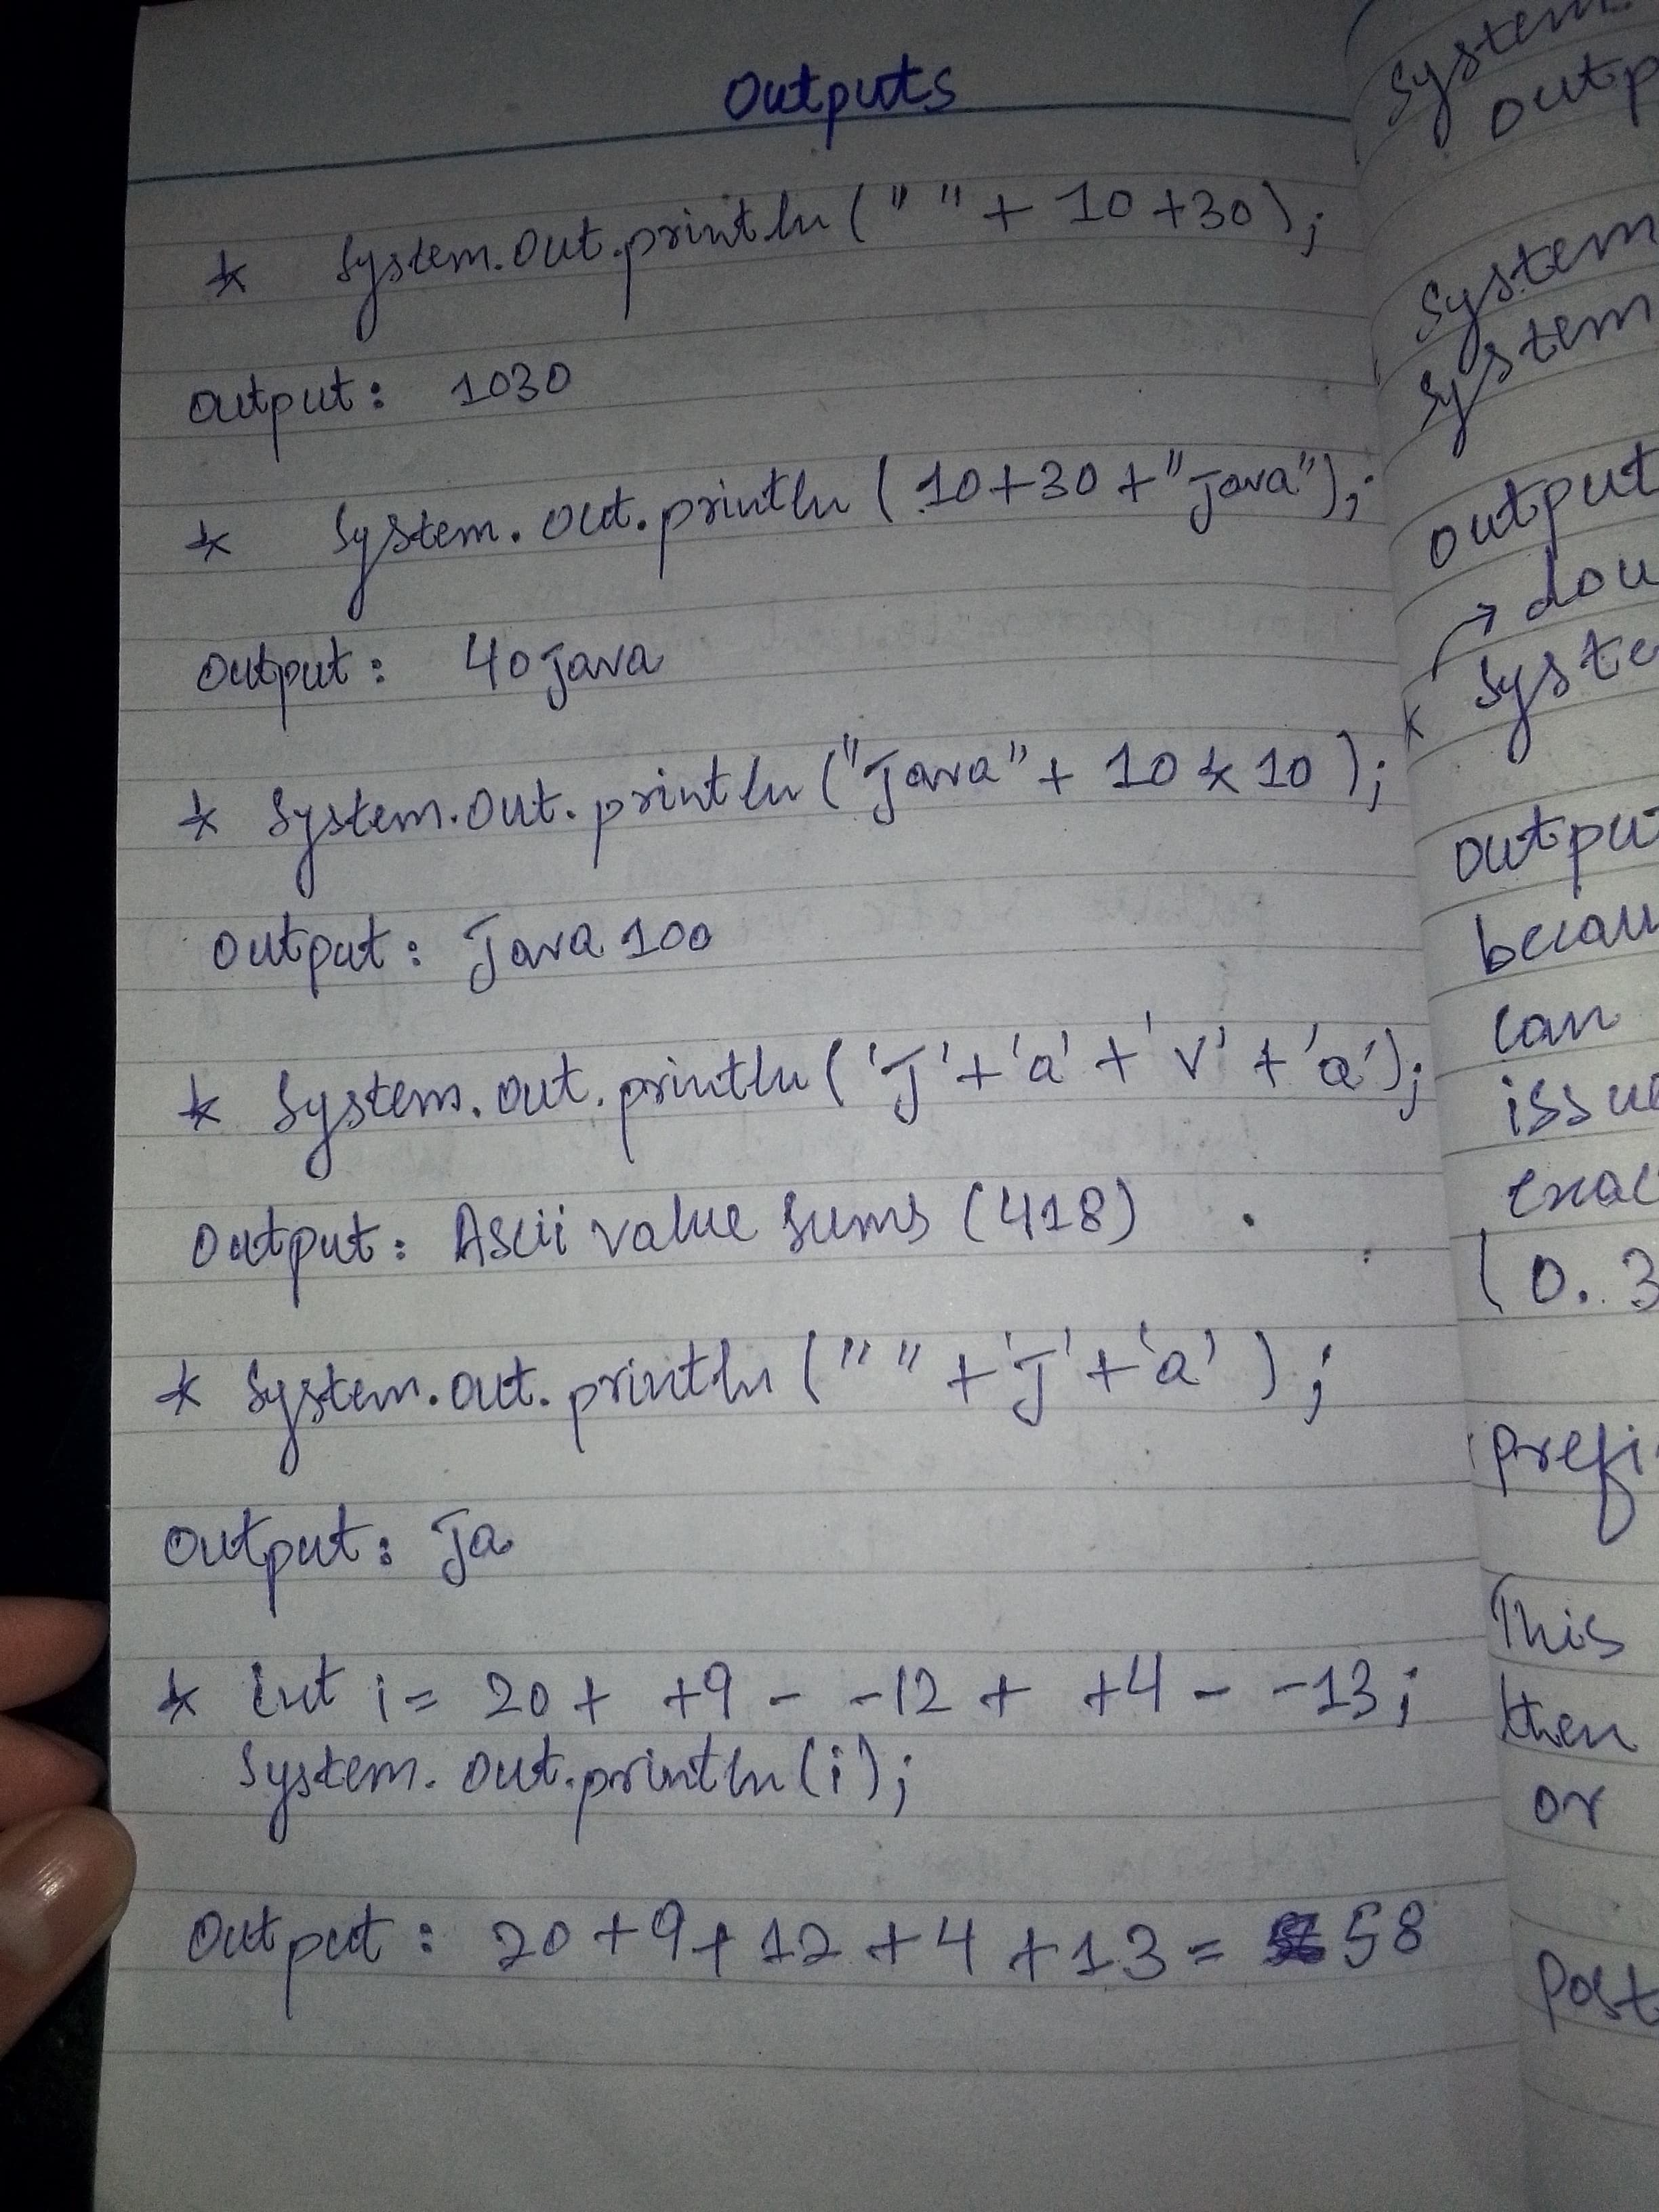 Outputs
* System.out.println (" " + 10 +30);
Output: 1030
* System.out.println (10+30 +"Java");
Output: 40Java
* System.out.println ("Java" + 10 * 10);
Output: Java 100
* System.out.println ('J' + 'a' + 'v' + 'a');
Output: Ascii value sums (418)
* System.out.println (" " + 'J' + 'a' );
Output: Ja
* int i = 20 + +9 - -12 + +4 - -13;
System.out.println(i);
Output: 20 +9+12 +4 +13 = 58
System.
outp
System
System
output
→ dou
* Syste
outpu
becau
can
issue
exac
(0.3
prefi
This
then
or
Post